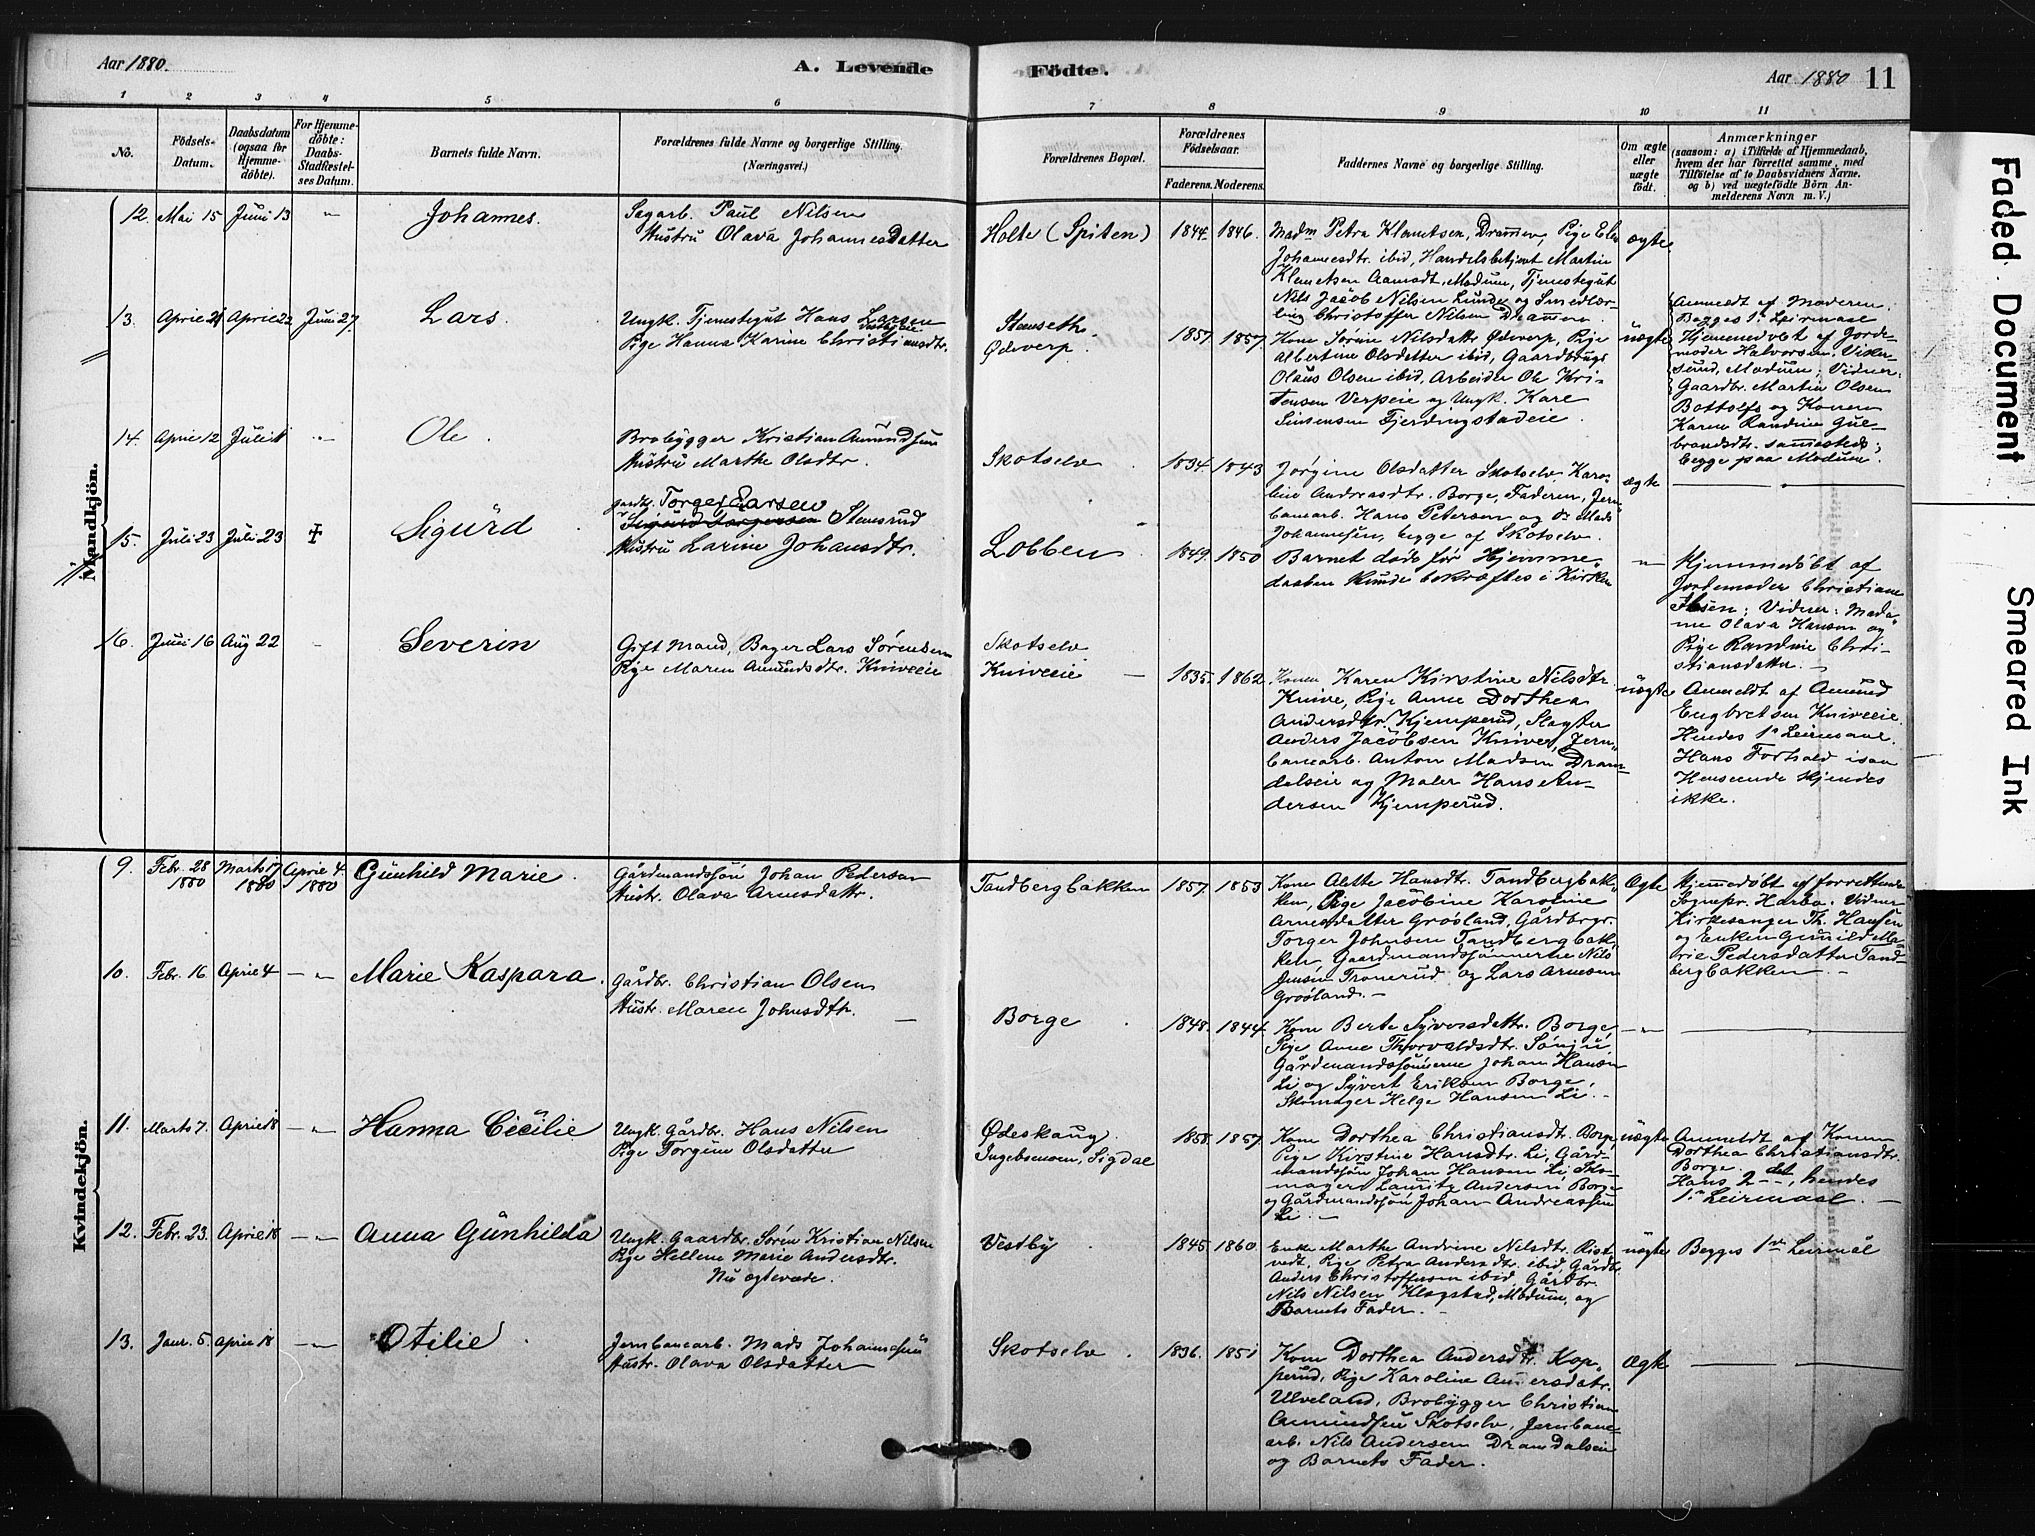 Aar 1880.
A. Levende
Födte.
Aar 1880
11
1
2
3
4
5
6
7
8
9
10
11
No.
Födsels-
Datum.
Daabsdatum
(ogsaa for
Hjemme-
döbte).
For Hjemme-
döbte:
Daabs-
Stadfæstel-
ses Datum.
Barnets fulde Navn.
Forældrenes fulde Navne og borgerlige Stilling.
(Næringsvei.)
Forældrenes Bopæl.
Forældrenes
Födselsaar.
Faderens.
Moderens.
Faddernes Navne og borgerlige Stilling.
Om ægte
eller
uægte
födt.
Anmærkninger
(saasom: a) i Tilfælde af Hjemmedaab,
hvem der har forrettet samme, med
Tilföielse af to Daabsvidners Navne.
og b) ved uægtefödte Börn An-
melderens Navn m. V.)
Mandkjön.
12. Mai 15 Juni 13 "
Johannes.
Sagarb. Paul Nilsen
Hustru Olava Johannesdatter
Holte (Spiten)
1844. 1846.
Madm Petra Klemetsen, Drammen, Pige
Johannesdtr. ibid, Handelsbetjent Martin
Klemetsen Aamodt, Modum, Tjenestegut
Nils Jacob Nilsen Lunde og Smedlær-
ling Christoffer Nilsen Drammen.
ægte
13. April 21 April 22 Juni 27
Lars.
Ungk. Tjenestegut Hans Larsen
Pige Hanna Karine Christiansdtr.
Stenseth
Ødeverp.
1857. 1857
Kone Sørine Nilsdatter Ødeverp, Pige
Albertine Olsdatter ibid, Gaardbrugs
Olaus Olsen ibid, Arbeider Ole Kri-
stensen Verpeie og Ungk. Karl
Simensen Fjerdingstadeie.
uægte
Anmeldt af Moderen.
Begges 1ste Leirmaal
Hjemmedöbt af Jorde-
moder Halvorsen, Viker-
sund, Modum; Vidner:
Gaardbr. Martin Olsen
Bottolfs og Konen
Karen Randine Gul-
brandsdtr. sammesteds,
begge paa Modum.
14. April 12 Juli 11 "
Ole.
Brobygger Kristian Amundsen
Hustru Marthe Olsdtr.
Skotselv.
1834. 1843
Jørgine Olsdatter Skotselv, Karo-
line Andreasdtr. Borge, Faderen, Jern-
banearb. Hans Petersen og do Mads
Johannesen, begge af Skotselv.
ægte
15. Juli 23 Juli 23
Sigurd
gardbr. Torger Larsen
Sigurd Torgersen Stensrud
Hustru Larine Johansdtr.
Lobben
1849. 1850
Barnet døde før Hjemme-
daaben kunde bekræftes i Kirken
"
Hjemmedöbt af
Jordemoder Christiane
Ibsen; Vidner: Mada-
me Olava Hansen og
Pige Randine Chri-
stiansdatter.
16. Juni 16 Aug 22 -
Severin
Gift Mand, Bager Lars Sørensen
Pige Maren Amundsdtr. Kniveeie
Skotselv
Kniveeie
1835. 1862
Konen Karen Kirstine Nilsdtr.
Knive, Pige Anne Dorthea
Andersdtr. Kjemperud, Slagter
Anders Jacobsen Knive, Jern-
banearb. Anton Madsen Dram-
dalseie og Maler Hans An-
dersen Kjemperud.
uægte
Anmeldt af Amund
Engbretsen Kniveeie.
Hendes 1ste Leiermaal.
Hans Forhold i saa
Henseende kjendes
ikke.
Kvindekjön.
9. Febr. 28 1880 Marts 17 1880 April 4 1880
Gunhild Marie.
Gårdmandssøn Johan Pedersen
Hustr. Olava Arnesdattr.
Tandbergbakken
1857. 1853
Kone Alette Hansdtr. Tandbergbak-
ken, Pige Jacobine Karoline
Arnesdatter Grøsland, Gårdbrgr.
Torger Johnsen Tandbergbak-
ken Gaardmandssønnerne Nils
Jensen Tronerud og Lars Arnesen
Grøsland.-
Ægte
Hjemmedöbt af forrettende
Sognepr. Harbo. Vidner
Kirkesanger Th. Hansen
og Enken Gunild Ma-
rie Pedersdatter Tand-
bergbakken.-
10. Febr. 16. April 4 - " -
Marie Kaspara.
Gårdbr. Christian Olsen
Hustr. Maren Johnsdtr. -
Borge.
1848. 1844
Kone Berte Syversdattr. Borge,
Pige Anne Thorvaldsdtr. Sønju
Gårdmandssønnerne Johan Hansen
Li og Syvert Eriksen Borge,
Skomager Helge Hansen Li.-
- " -
11. Marts 7. April 18 - " -
Hanna Cecilie
Ungk. Gårdbr. Hans Nilsen
Pige Torgine Olsdatter
Ødeskaug.
Ingebsmoen, Sigdal
1858. 1857
Kone Dorthea Christiansdtr. Borge,
Pige Kirstine Hansdtr. Li, Gård-
mandssøn Johan Hansen Li, Sko-
mager Lauritz Andersen Borge
og Gårdmandssøn Johan Andreassen
Li. -
uægte
Anmeldt af Konen
Dorthea Christiansdtr.
Borge.
Hans 2det, hendes
1ste Leirmaal. -
12. Febr. 23. April 18 - " -
Anna Gunhilda
Ungk. Gaardbr. Søren Kristian Nilsen
Pige Hellene Marie Andersdtr.
Nu egteviede.
Vestby
1845. 1860
Enke Marthe Andrine Nilsdtr. Rist-
vedt, Pige Petra Andersdtr. ibid, Gårdbr.
Anders Christoffersen ibid, Gårdbr.
Nils Nilsen Klogstad, Modum, og
Barnets Fader. -
uægte
Begges 1ste Leirmål
13. Janr. 5. April 18 - " -
Otilie
Jernbanearb. Mads Johannesen
Hustr. Olava Olsdatter
Skotselv.
1836. 1851
Kone Dorthea Andersdtr. Kop-
perud, Pige Karoline Andersdatr.
Ulveland, Brobygger Christian
Amundsen Skotselv, Jernbane-
arb. Nils Andersen Dramdalseie
og Barnets Fader.
Ægte
Faded Document
Smeared Ink